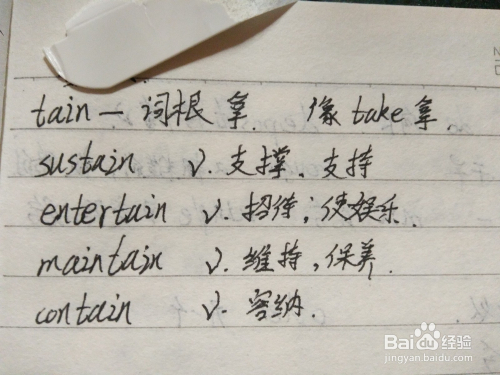 tain — 词根 拿. 像 take 拿.
sustain v. 支撑, 支持
entertain v. 招待; 使娱乐.
maintain v. 维持, 保养.
contain v. 容纳.
Baidu经验
jingyan.baidu.com